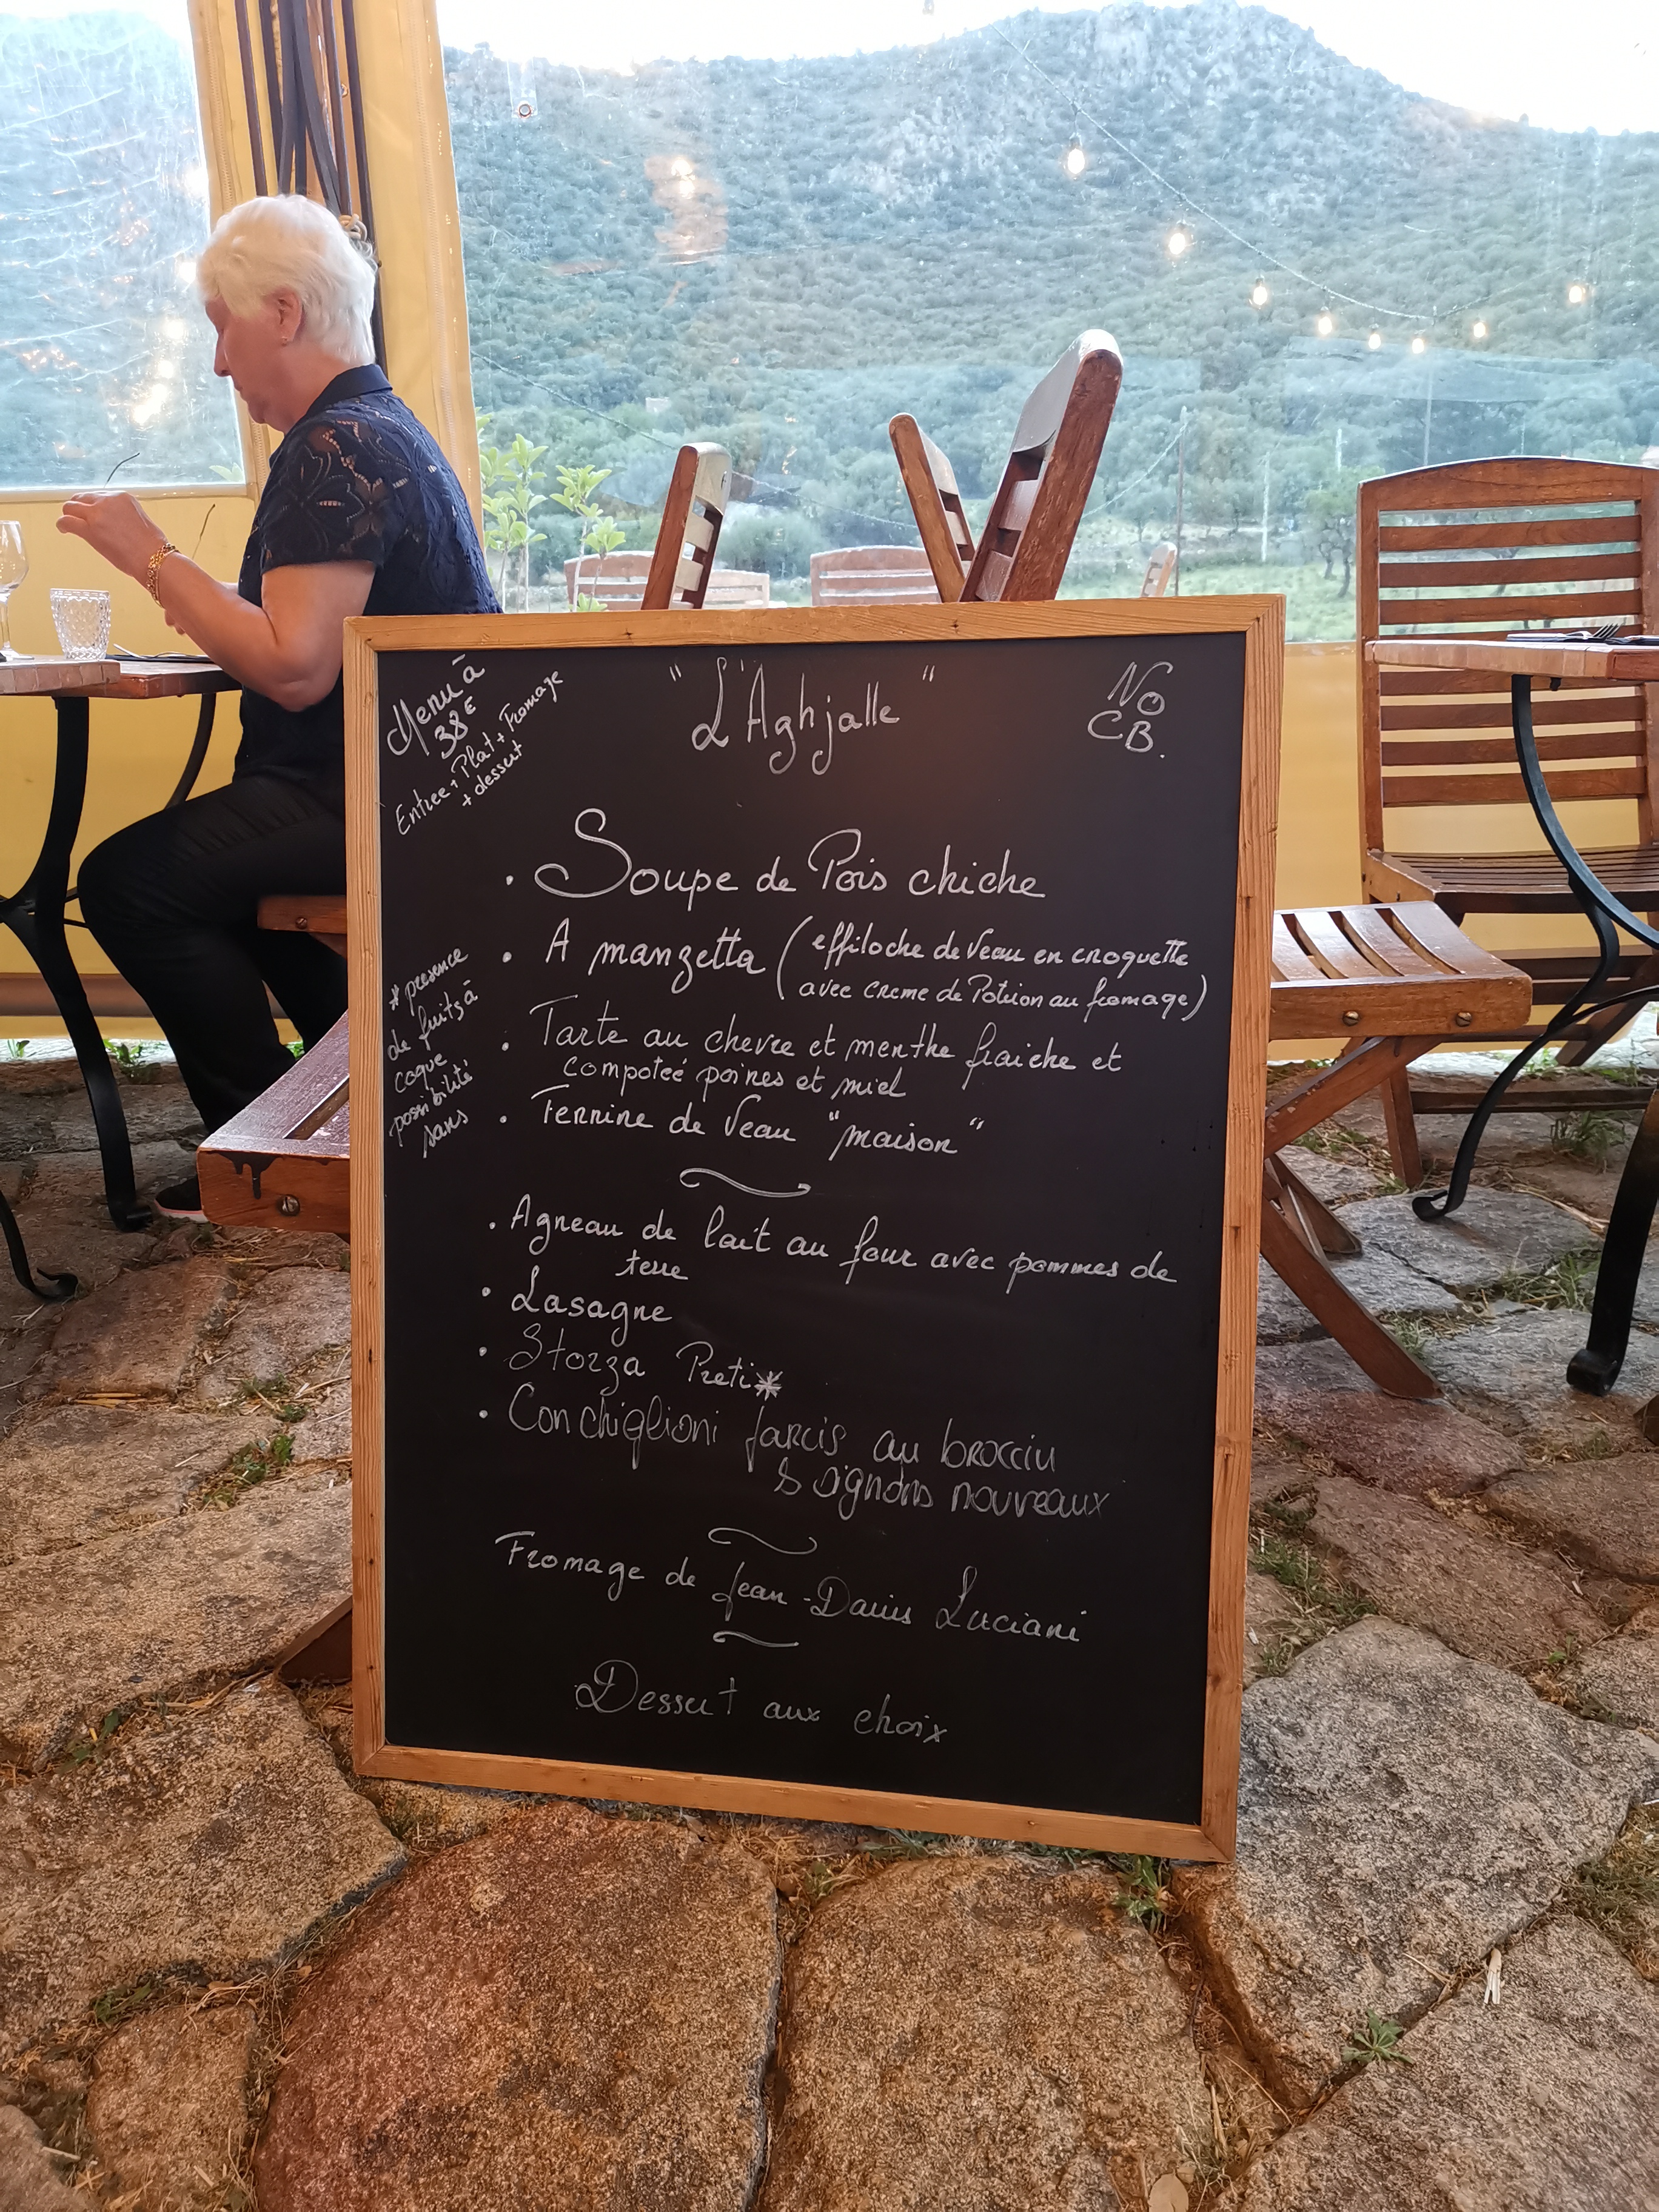 Menu à
38€
Entree + Plat + Fromage
+ dessert
"L'Aghjalle"
No
CB.
. Soupe de Pois chiche
. A manzetta (effiloche de Veau en croquette
avec creme de Potiron au fromage)
. Tarte au chevre et menthe fraiche et
compoteé poires et miel
. Terrine de Veau "maison"
* presence
de fruits à
coque
possibilité
sans
. Agneau de lait au four avec pommes de
terre
. Lasagne
. Storza Preti*
. Conchiglioni farcis au brocciu
& oignons nouveaux
Fromage de Jean-Darius Luciani
Dessert aux choix